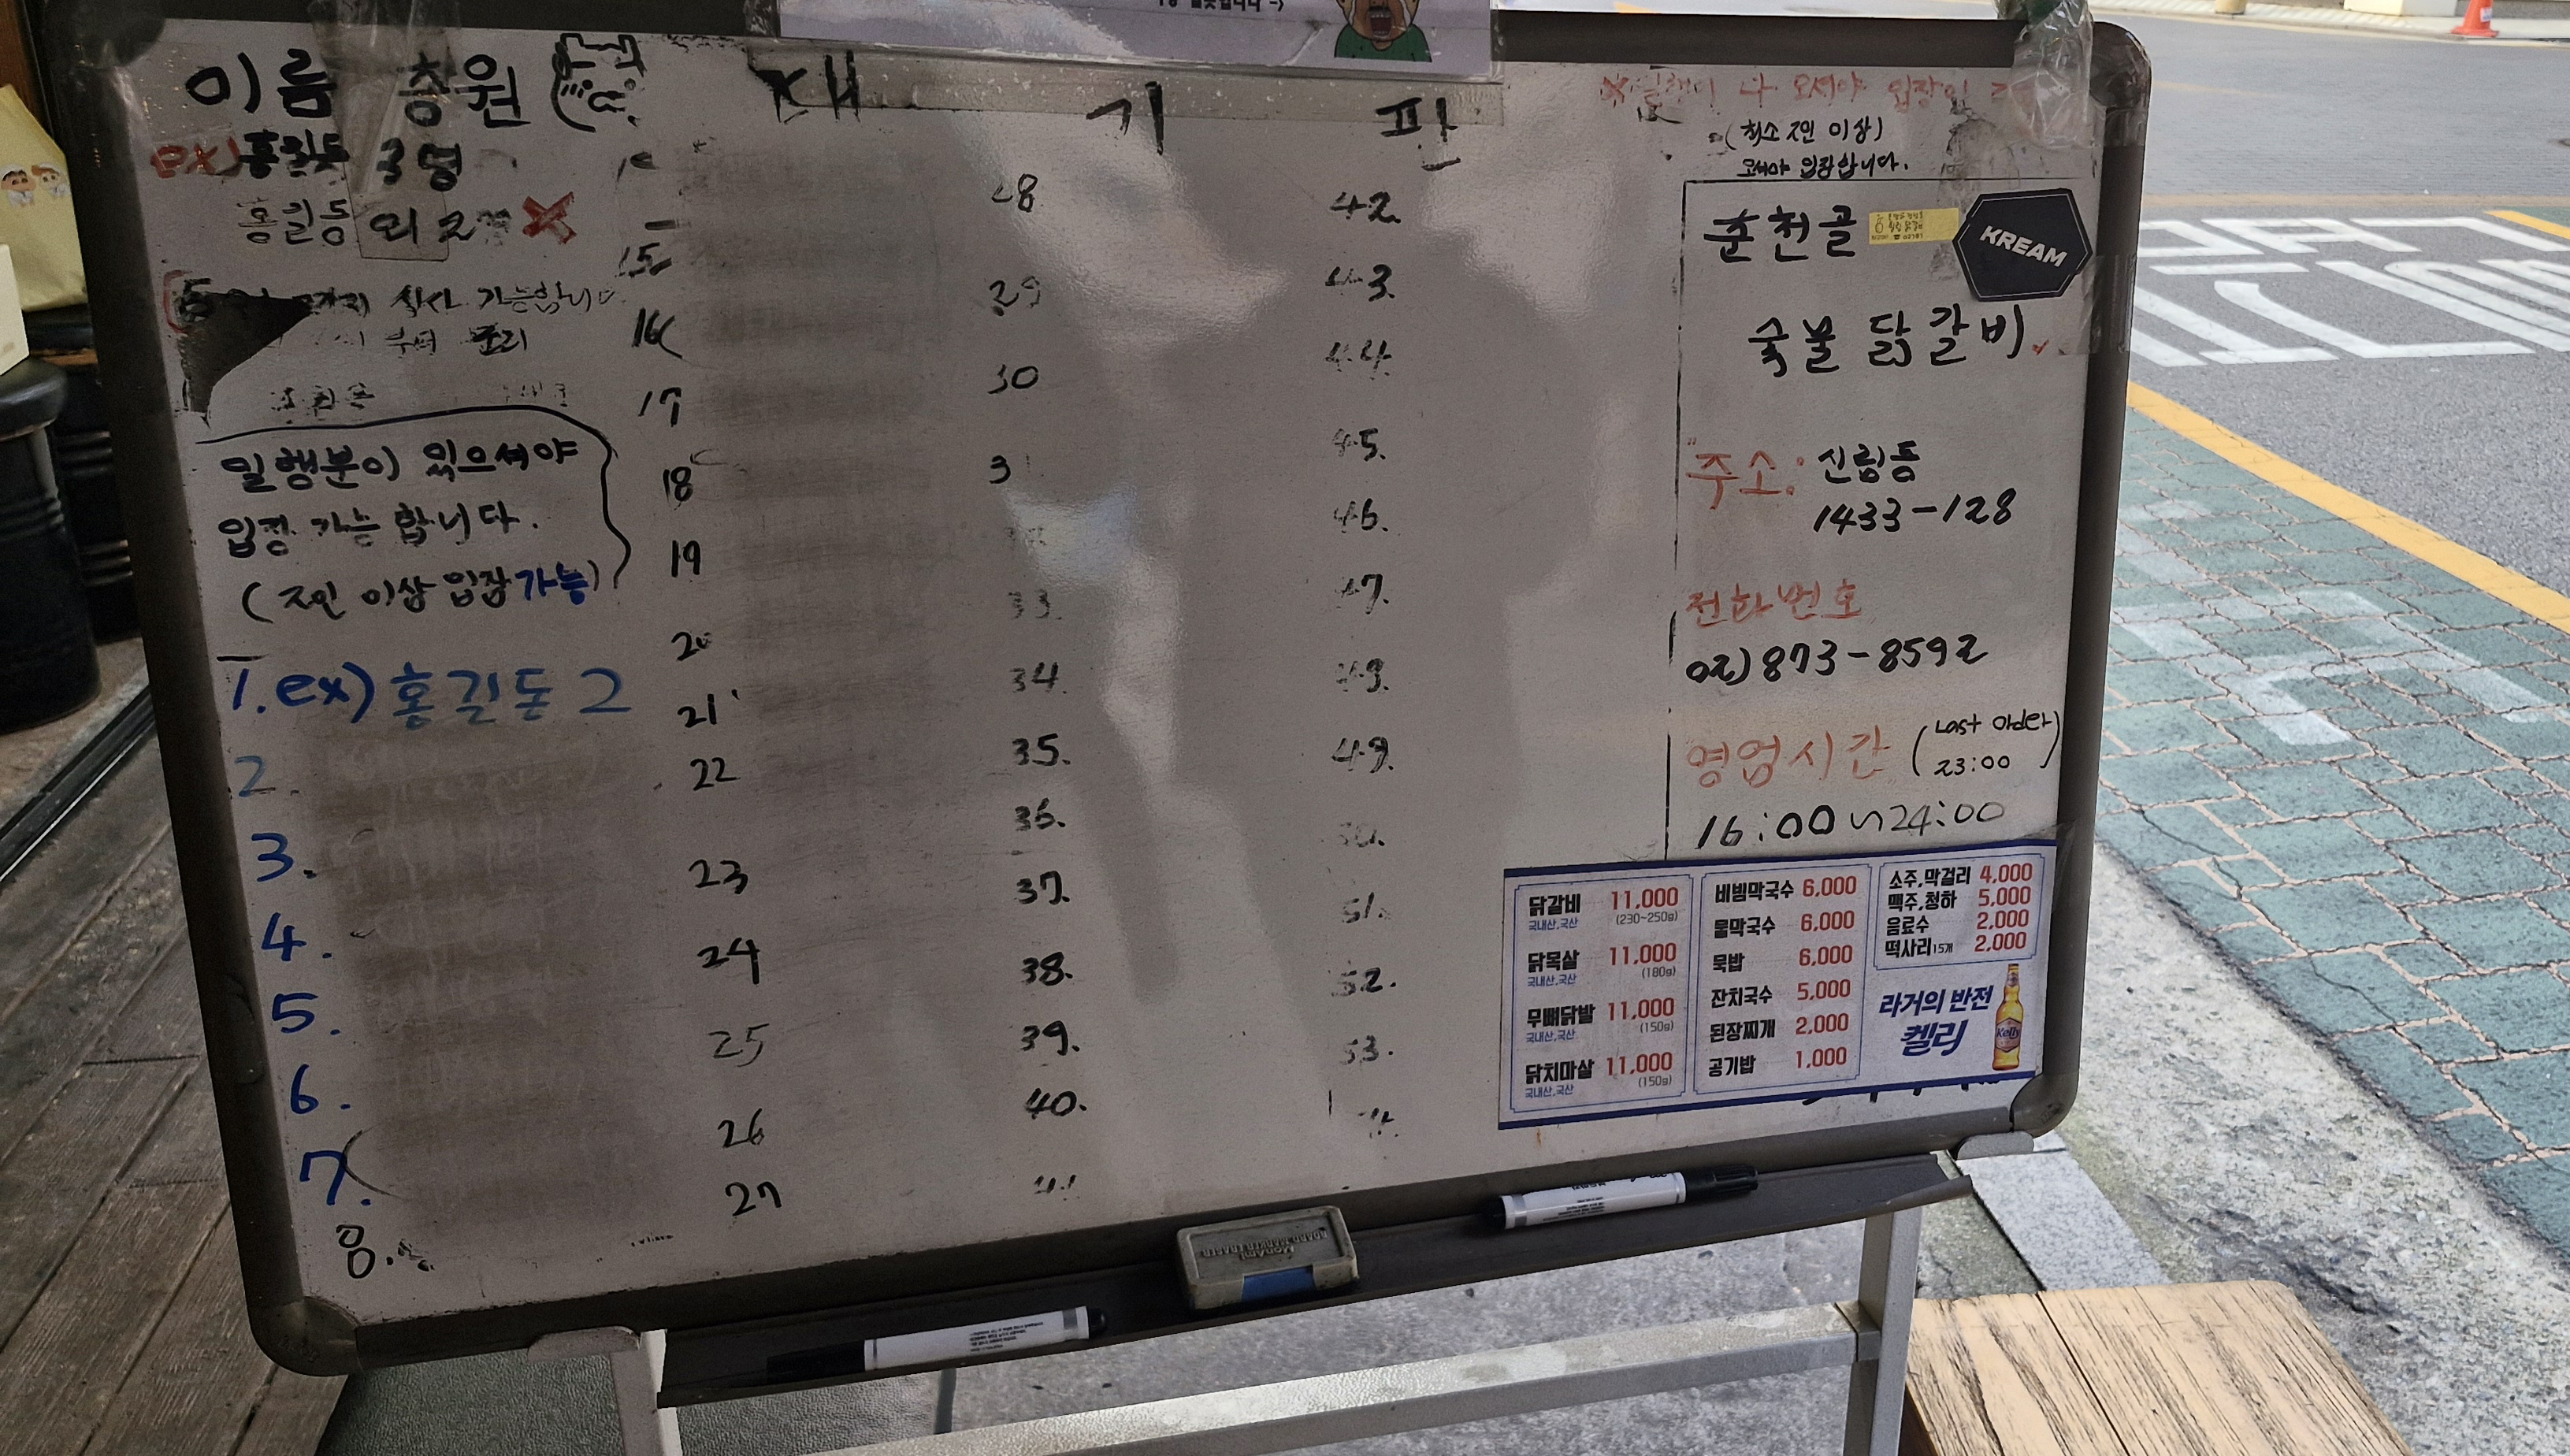 이름 총원
대 기 판
ex) 홍길동 3명
홍길동 외 2
식사 가능합니다
부터
일행분이 있으셔야
입장 가능 합니다.
(2인 이상 입장 가능)
1. ex) 홍길동 2
2.
3.
4.
5.
6.
7.
8.
15
16
17
18
19
20
21
22
23
24
25
26
27
28
29
30
3
33.
34.
35.
36.
37.
38.
39.
40.
41
42.
43.
44.
45.
46.
47.
49.
51.
52.
53.
다 오셔야 입장이
(최소 2인 이상)
오셔야 입장합니다.
춘천골
KREAM
숯불 닭갈비
주소: 신림동
1433-128
전화번호
02) 873-8592
영업시간 (Last order
23:00)
16:00~24:00
닭갈비 11,000
국내산,국산 (230~250g)
닭목살 11,000
국내산,국산 (180g)
무뼈닭발 11,000
국내산,국산 (150g)
닭치마살 11,000
국내산,국산 (150g)
비빔막국수 6,000
물막국수 6,000
묵밥 6,000
잔치국수 5,000
된장찌개 2,000
공기밥 1,000
소주,막걸리 4,000
맥주,청하 5,000
음료수 2,000
떡사리 15개 2,000
라거의 반전
켈리
Kelly
MonAmi
BOARD MARKER ERASER